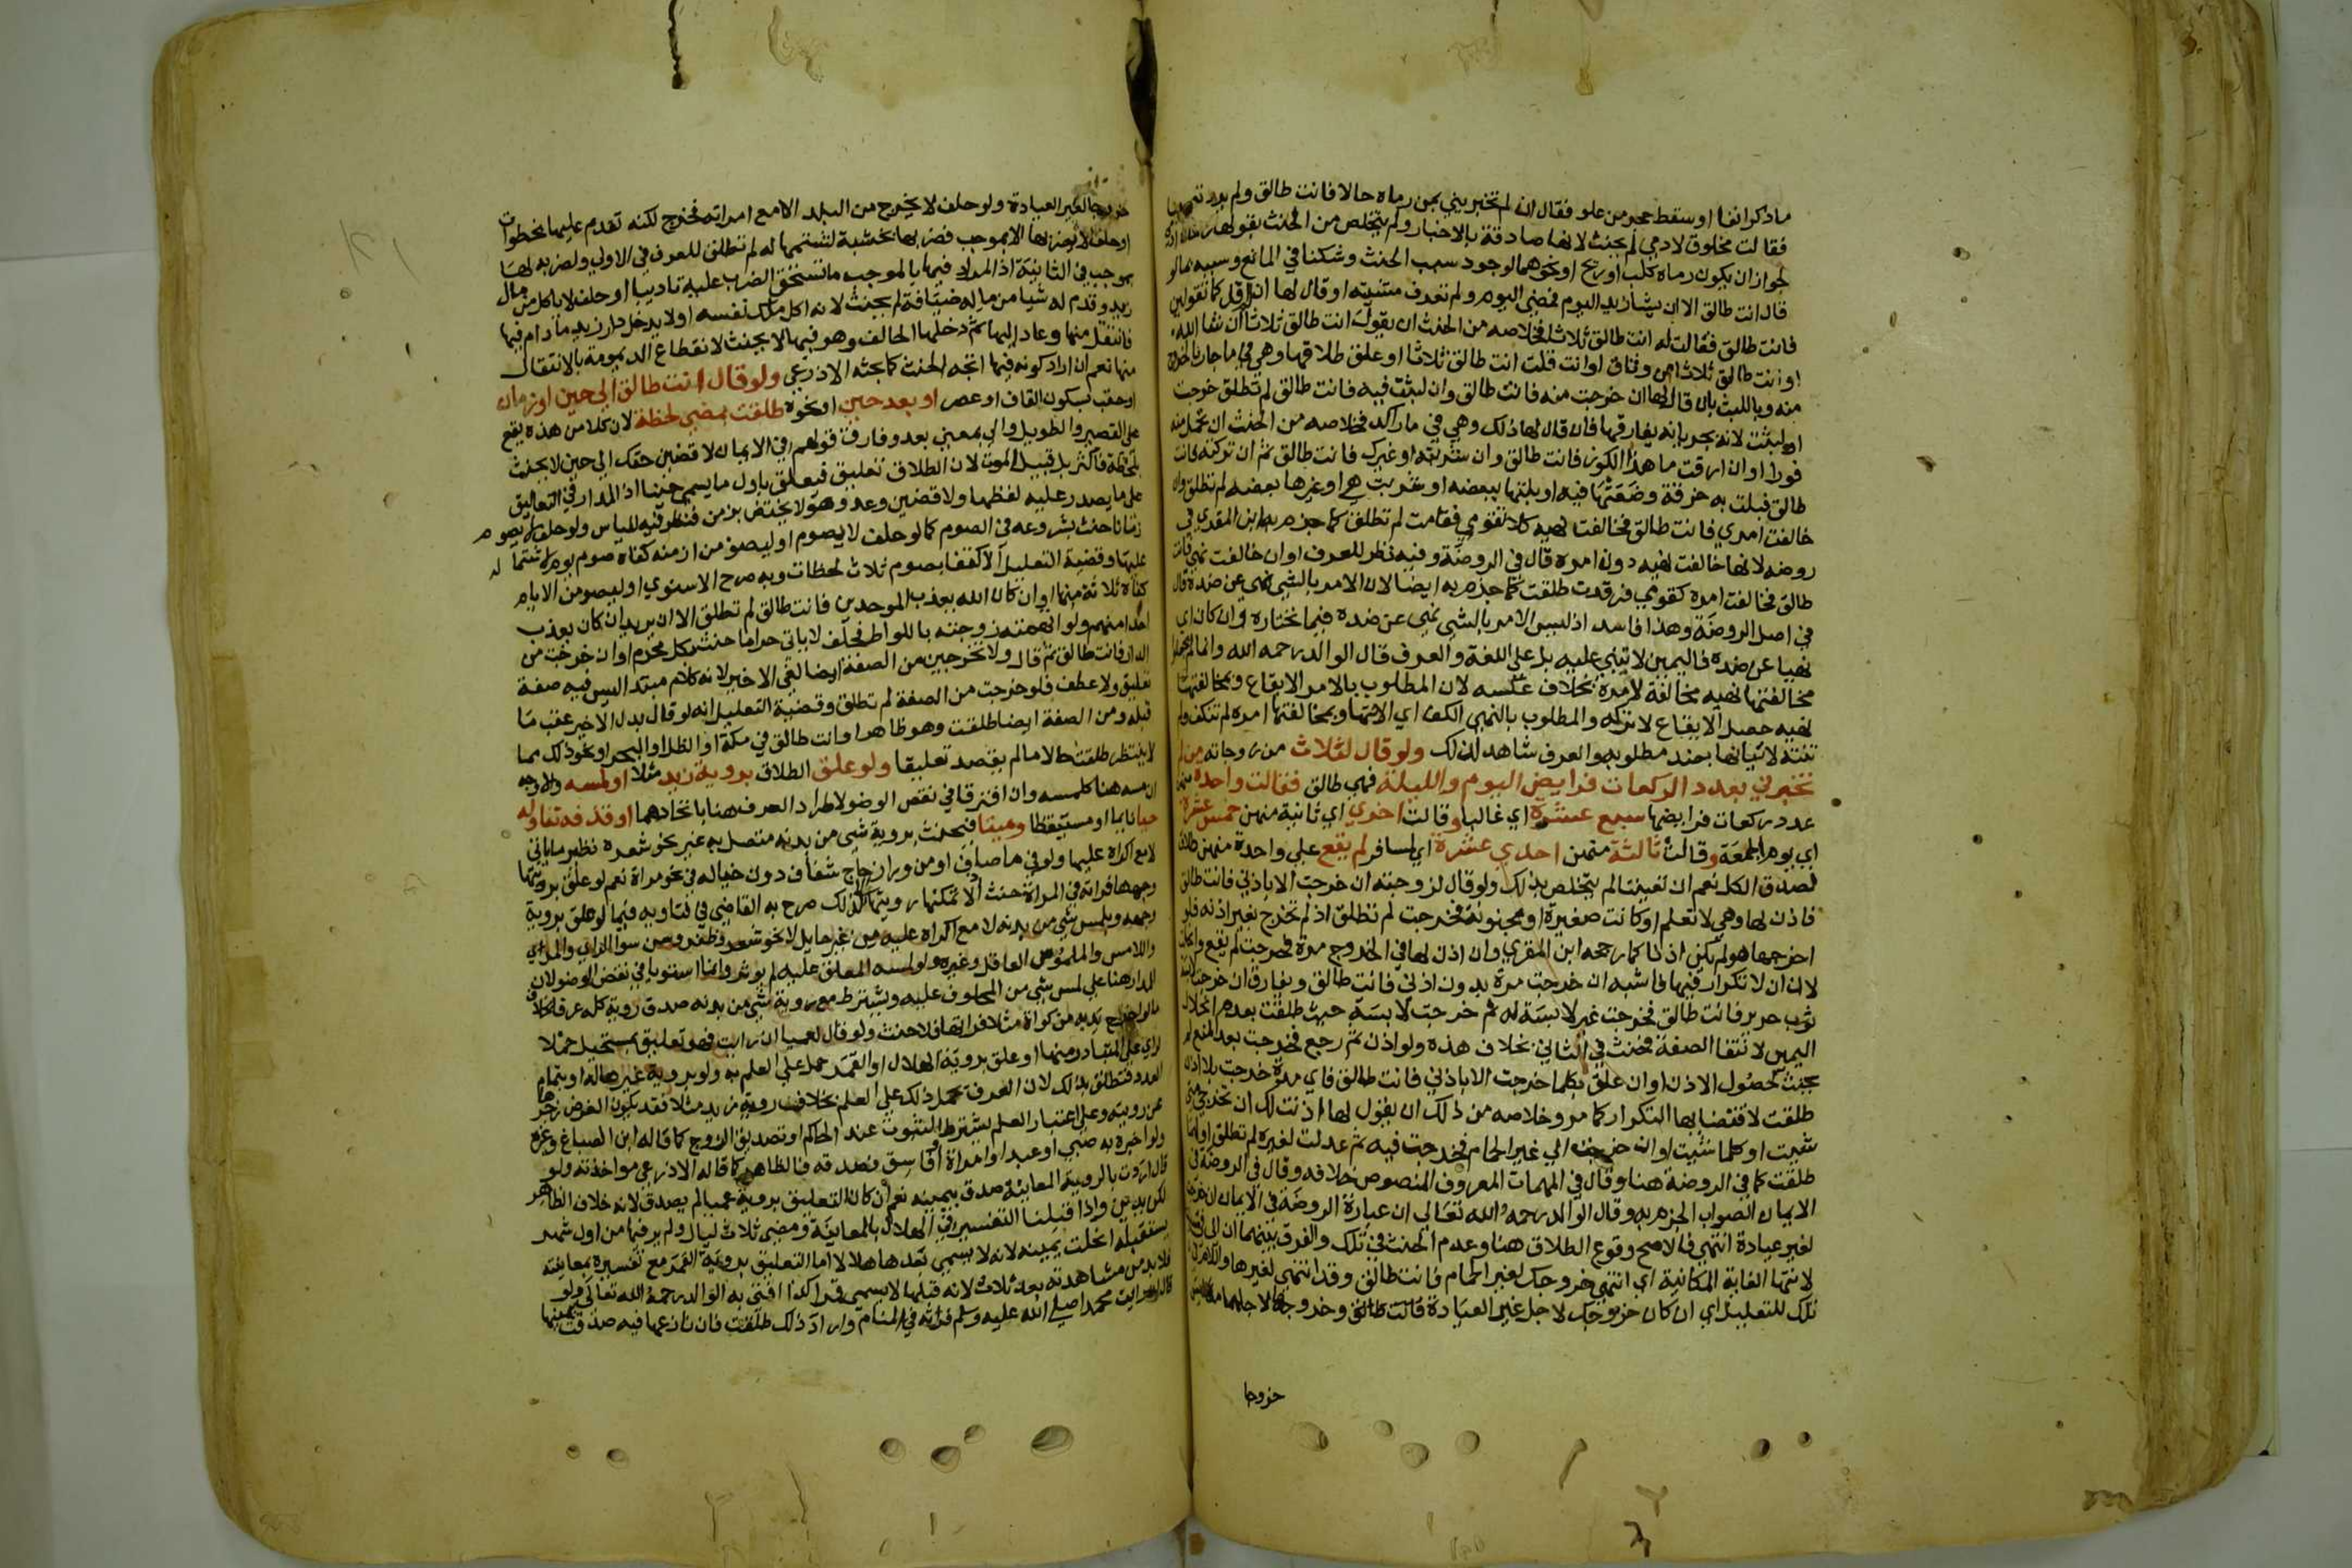 ما ذكر انفا او سقط حجر من علو فقال ان لم تخبريني بمن رماه حالا فانت طالق ولم يرد تعيينا
فقالت مخلوق لا دمي لم يحنث لانها صادقة بالاخبار ولم يتخلص من الحنث بقولها
لجواز ان يكون رماه كلب او ريح او نحوهما لوجود سبب الحنث وشكنا في المانع وشبهه بما لو
قال انت طالق الا ان يشا زيد اليوم فمضي اليوم ولم تعرف مشيته او قال لها ان لم اقل كما تقولين
فانت طالق فقالت له انت طالق ثلاثا فخلاصه من الحنث ان يقول انت طالق ثلاثا ان شا الله
او انت طالق ثلاثا من وثاق او انت قلت انت طالق ثلاثا او علق طلاقها وهي في ما جار بالخروج
منه وباللبث بان قال لها ان خرجت منه فانت طالق وان لبثت فيه فانت طالق لم تطلق خرجت
او لبثت لانه بجريانه يفارقها فان قال لها ذلك وهي في ما راكد فخلاصه من الحنث ان تحمل منه
فورا او ان ارقت ما هذا الكوز فانت طالق وان شربته او غيرك فانت طالق ثم ان تركته فانت
طالق فبلت به خرقة وضعتها فيه او بلتها ببعضه او شربت هي او غيرها بعضه لم تطلق وان
خالفت امري فانت طالق فخالفت نهيه كلا تقومي فقامت لم تطلق كما جزم به ابن المقري في
روضه لانها خالفت نهيه دون امره قال في الروضة وفيه نظر للعرف او ان خالفت نهيي فانت
طالق فخالفت امره كقومي فرقدت طلقت كما جزم به ايضا لان الامر بالشي نهي عن ضده قال
في اصل الروضة وهذا فاسد اذ ليس الامر بالشي نهي عن ضده فيما نختاره وان كان اي
نهيا عن ضده فاليمين لا تبني عليه بل على اللغة والعرف قال الوالد رحمه الله وانما لم تجعل
مخالفتها نهيه مخالفة لامره بخلاف عكسه لان المطلوب بالامر الايقاع وبمخالفتها
نهيه حصل الايقاع لا تركه والمطلوب بالنهي الكف اي الانتها وبمخالفتها امره لم تنكف ولم
تنته لاتيانها بضد مطلوبه والعرف شاهد لذلك ولو قال لثلاث من زوجاته من لم
تخبرني بعدد الركعات فرايض اليوم والليلة فهي طالق فقالت واحدة منهن
عدد ركعات فرايضها سبع عشرة اي غالبا وقالت اخري اي ثانية منهن خمس عشرة
اي يوم الجمعة وقالت ثالثة منهن احدي عشرة اي لمسافر لم يقع علي واحدة منهن طلاق
لصدق الكل نعم ان تعينا لم يتخلص بذلك ولو قال لزوجته ان خرجت الا باذني فانت طالق
فاذن لها وهي لا تعلم او كانت صغيرة او مجنونة فخرجت لم تطلق اذ لم تخرج بغير اذنه فلو
اخرجها هو لم يكن اذنا كما رجحه ابن المقري وان اذن لها في الخروج مرة فخرجت لم يقع وانحلت
لان ان لا تكرار فيها فاشبه ان خرجت مرة بدون اذني فانت طالق ويفارق ان خرجت لابسة
ثوب حرير فانت طالق فخرجت غير لابسة له ثم خرجت لابسة حيث طلقت بعدم انحلال
اليمين لانتفا الصفة فحنث في الثاني بخلاف هذه ولو اذن ثم رجع فخرجت بعد المنع لم
يحنث لحصول الاذن او ان علق بكلما خرجت الا باذني فانت طالق فاي مرة خرجت بلا اذن
طلقت لاقتضايها التكرار كما مر وخلاصه من ذلك ان يقول لها اذنت لك ان تخرجي متي
شيت او كلما شيت او ان خرجت الي غير الحمام فخرجت فيه ثم عدلت لغيره لم تطلق او لهما
طلقت كما في الروضة هنا وقال في المهمات المعروف المنصوص خلافه وقال في الروضة في
الايمان الصواب الجزم به وقال الوالد رحمه الله تعالي ان عبارة الروضة في الايمان ان خرجت
لغير عيادة انتهي فالاصح وقوع الطلاق هنا وعدم الحنث في تلك والفرق بينهما ان الي
لانتها الغاية المكانية اي انتهي خروجك لغير الحمام فانت طالق وقد انتهي لغيرها واللام في
تلك للتعليل اي ان كان خروجك لاجل غير العيادة فانت طالق وخروجها لاجلهما معا ليس
خروجا
خروجا لغير العيادة ولو حلف لا يخرج من البلد الا مع امراته فخرج لكنه تقدم عليها بخطوات
او حلف لا يضربها الا بموجب فضربها بخشبة لشتمها له لم تطلق للعرف في الاولي ولضربه لها
بموجب في الثانية اذ المراد فيها بالموجب ما تستحق الضرب عليه تاديبا او حلف لا ياكل من مال
زيد وقدم له شيا من ماله ضيافة لم يحنث لانه اكل ملك نفسه او لا يدخل دار زيد ما دام فيها
فانتقل منها وعاد اليها ثم دخلها الحالف وهو فيها لا يحنث لانقطاع الديمومة بالانتقال
منها نعم ان اراد كونه فيها اتجه الحنث كما بحثه الاذرعي ولو قال انت طالق الي حين او زمان
او حقب بسكون القاف او عصر او بعد حين او نحوه طلقت بمضي لحظة لان كلا من هذه يقع
علي القصير والطويل والي بمعني بعد وفارق قولهم في الايمان لاقضين حقك الي حين لا يحنث
بلحظة فاكثر بل قبيل الموت لان الطلاق تعليق فيتعلق باول ما يسمي حينا اذ المدار في التعاليق
علي ما يصدر عليه لفظها ولاقضين وعد وهو لا يختص بزمن فنظر فيه للياس ولو حلف لا يصوم
زمانا حنث بشروعه في الصوم كما لو حلف لا يصوم او ليصومن ازمنه كفاه صوم يوم لاشتماله
عليها وقضية التعليل الاكتفا بصوم ثلاث لحظات وبه صرح الاسنوي او ليصومن الايام
كفاه ثلاثة منها او ان كان الله يعذب الموحدين فانت طالق لم تطلق الا ان يريد ان كان يعذب
احدا منهم ولو اتهمته زوجته باللواط فحلف لا ياتي حراما حنث بكل محرم او ان خرجت من
الدار فانت طالق ثم قال ولا تخرجين من الصفة ايضا لغي الاخير لانه كلام مبتدا ليس فيه صفة
تعليق ولا عطف فلو خرجت من الصفة لم تطلق وقضية التعليل انه لو قال بدل الاخير عقب ما
قبله ومن الصفة ايضا طلقت وهو ظاهر او انت طالق في مكة او الظل او البحر او نحو ذلك مما
لا ينتظر طلقت حالا ما لم يقصد تعليقا ولو علق الطلاق بروية زيد مثلا او لمسه والاوجه
ان مسه هنا كلمسه وان افترقا في نقض الوضو لاطراد العرف هنا باتحادهما او قذفه تناوله
حيا نايما او مستيقظا وميتا فيحنث بروية شي من بدنه متصل به غير نحو شعره نظير ما ياتي
لا مع اكراه عليها ولو في ما صاف او من ورا زجاج شفاف دون خياله في نحو مراة نعم لو علق برويتها
وجهها فراته في المراة حنث اذ لا يمكنها رويته الا كذلك صرح به القاضي في فتاويه فيما لو علق بروية
وجهه ويلمس شي من بدنه لا مع اكراه عليه من غير حايل لا نحو شعر وظفر وسن سوا الراي والمراي
واللامس والملموس العاقل وغيره ولو لمسه المعلق عليه لم يوثر وانما استويا في نقض الوضو لان
المدار هنا علي لمس شي من المحلوف عليه ويشترط مع روية شي من بدنه صدق روية كله عرفا بخلاف
ما لو اخرج يده من كوة مثلا فراتها فلا حنث ولو قال لعميا ان رايت فهو تعليق بمستحيل حملا
لراي علي المتبادر منها او علق بروية الهلال او القمر حمل علي العلم به ولو بروية غيرها له او بتمام
العدد فتطلق بذلك لان العرف يحمل ذلك علي العلم بخلاف روية زيد مثلا فقد يكون الغرض زجرها
عن رويته وعلي اعتبار العلم يشترط الثبوت عند الحاكم او تصديق الزوج كما قاله ابن الصباغ وغيره
ولو اخبره به صبي او عبد او امراة او فاسق فصدقه فالظاهر كما قاله الاذرعي مواخذته ولو
قال اردت بالروية المعاينة صدق بيمينه نعم ان كان التعليق بروية عمياء لم يصدق لانه خلاف الظاهر
لكن يدين واذا قبلنا التفسير في الهلال بالمعاينة ومضي ثلاث ليال ولم ير فيها من اول شهر
يستقبله انحلت يمينه لانه لا يسمي بعدها هلالا اما التعليق بروية القمر مع تفسيره بمعاينته
فلا بد من مشاهدته بعد ثلاث لانه قبلها لا يسمي قمرا كذا افتي به الوالد رحمه الله تعالي ولو
قال ان رايت محمدا صلي الله عليه وسلم فراته في المنام واراد ذلك طلقت فان نازعها فيه صدقت بيمينها